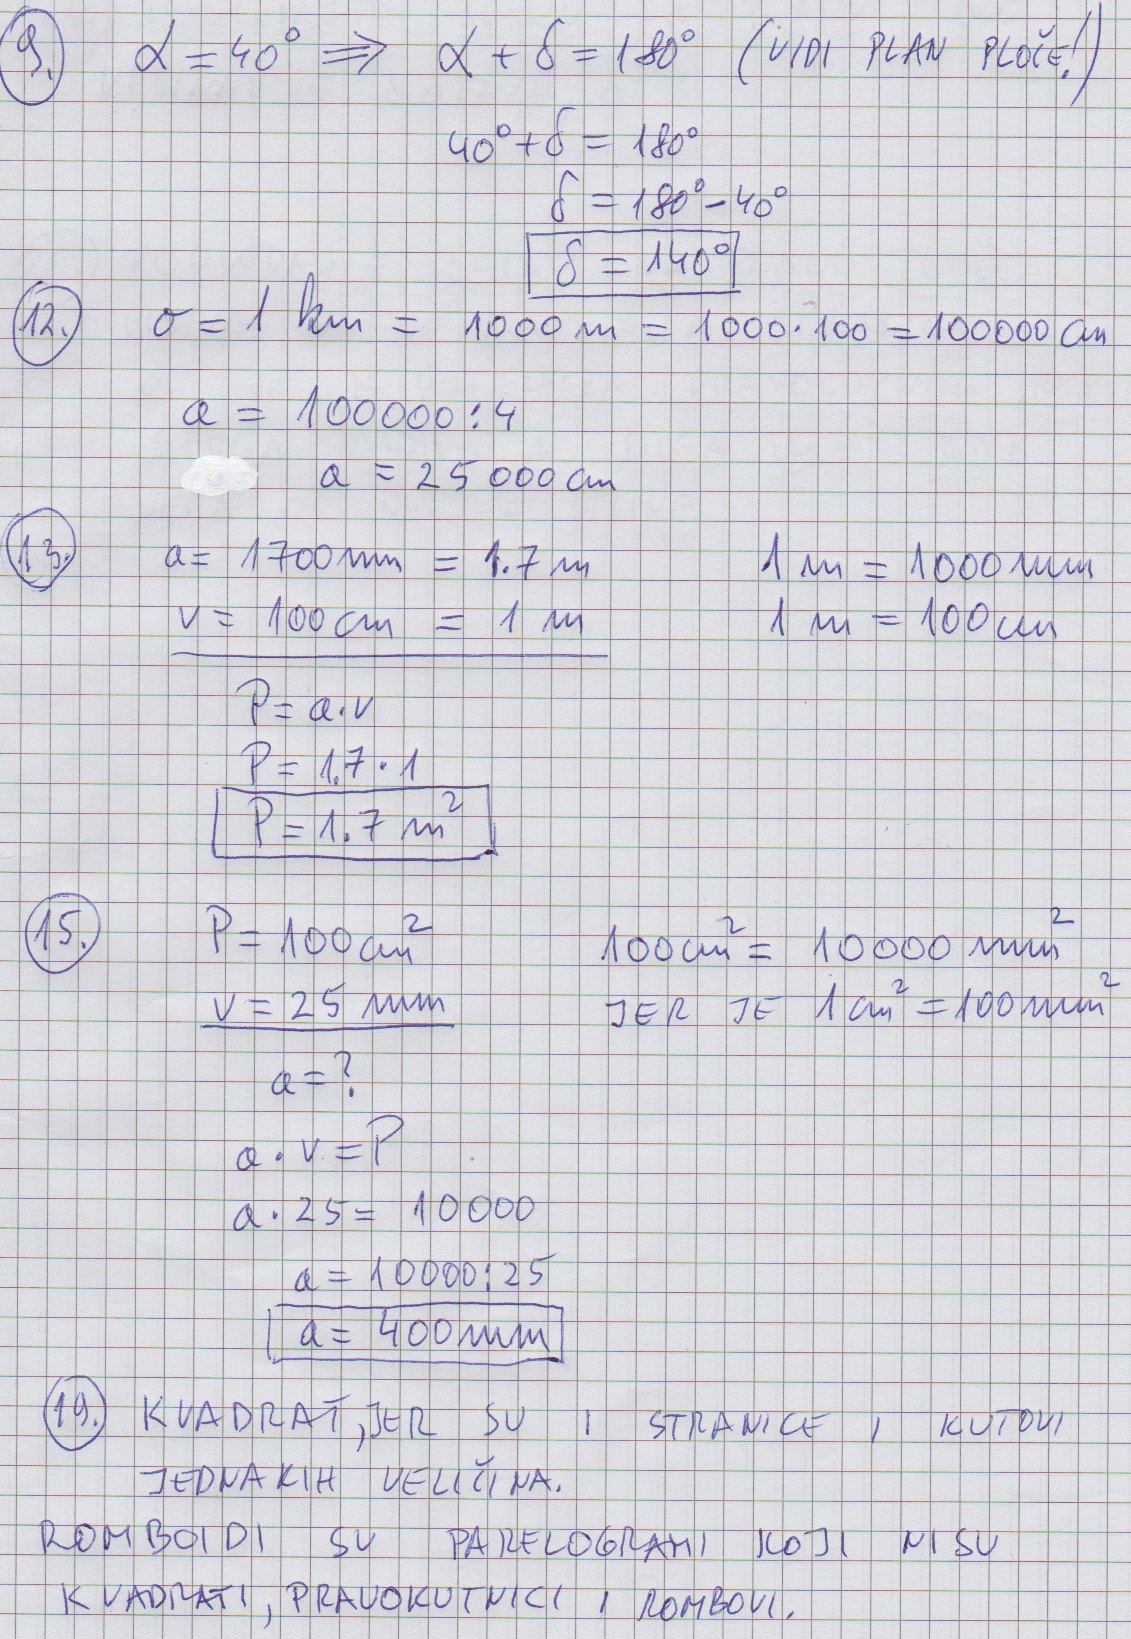 9. α = 40° ⇒ α + δ = 180° (VIDI PLAN PLOČE!)
40° + δ = 180°
δ = 180° - 40°
δ = 140°
12. σ = 1 km = 1000 m = 1000·100 = 100000 cm
a = 100000:4
a = 25000 cm
13. a = 1700 mm = 1.7 m 1 m = 1000 mm
v = 100 cm = 1 m 1 m = 100 cm
P = a·v
P = 1.7·1
P = 1.7 m²
15. P = 100 cm² 100 cm² = 10000 mm²
v = 25 mm JER JE 1 cm² = 100 mm²
a = ?
a·v = P
a·25 = 10000
a = 10000:25
a = 400 mm
19. KVADRAT, JER SU I STRANICE I KUTOVI
JEDNAKIH VELIČINA.
ROMBOIDI SU PARELOGRAMI KOJI NISU
KVADRATI, PRAVOKUTNICI I ROMBOVI.